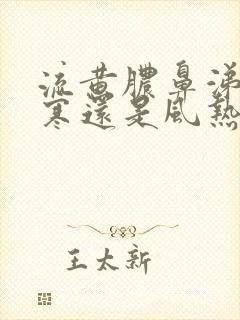 流黃膿鼻涕
寒還是風熱
王太新